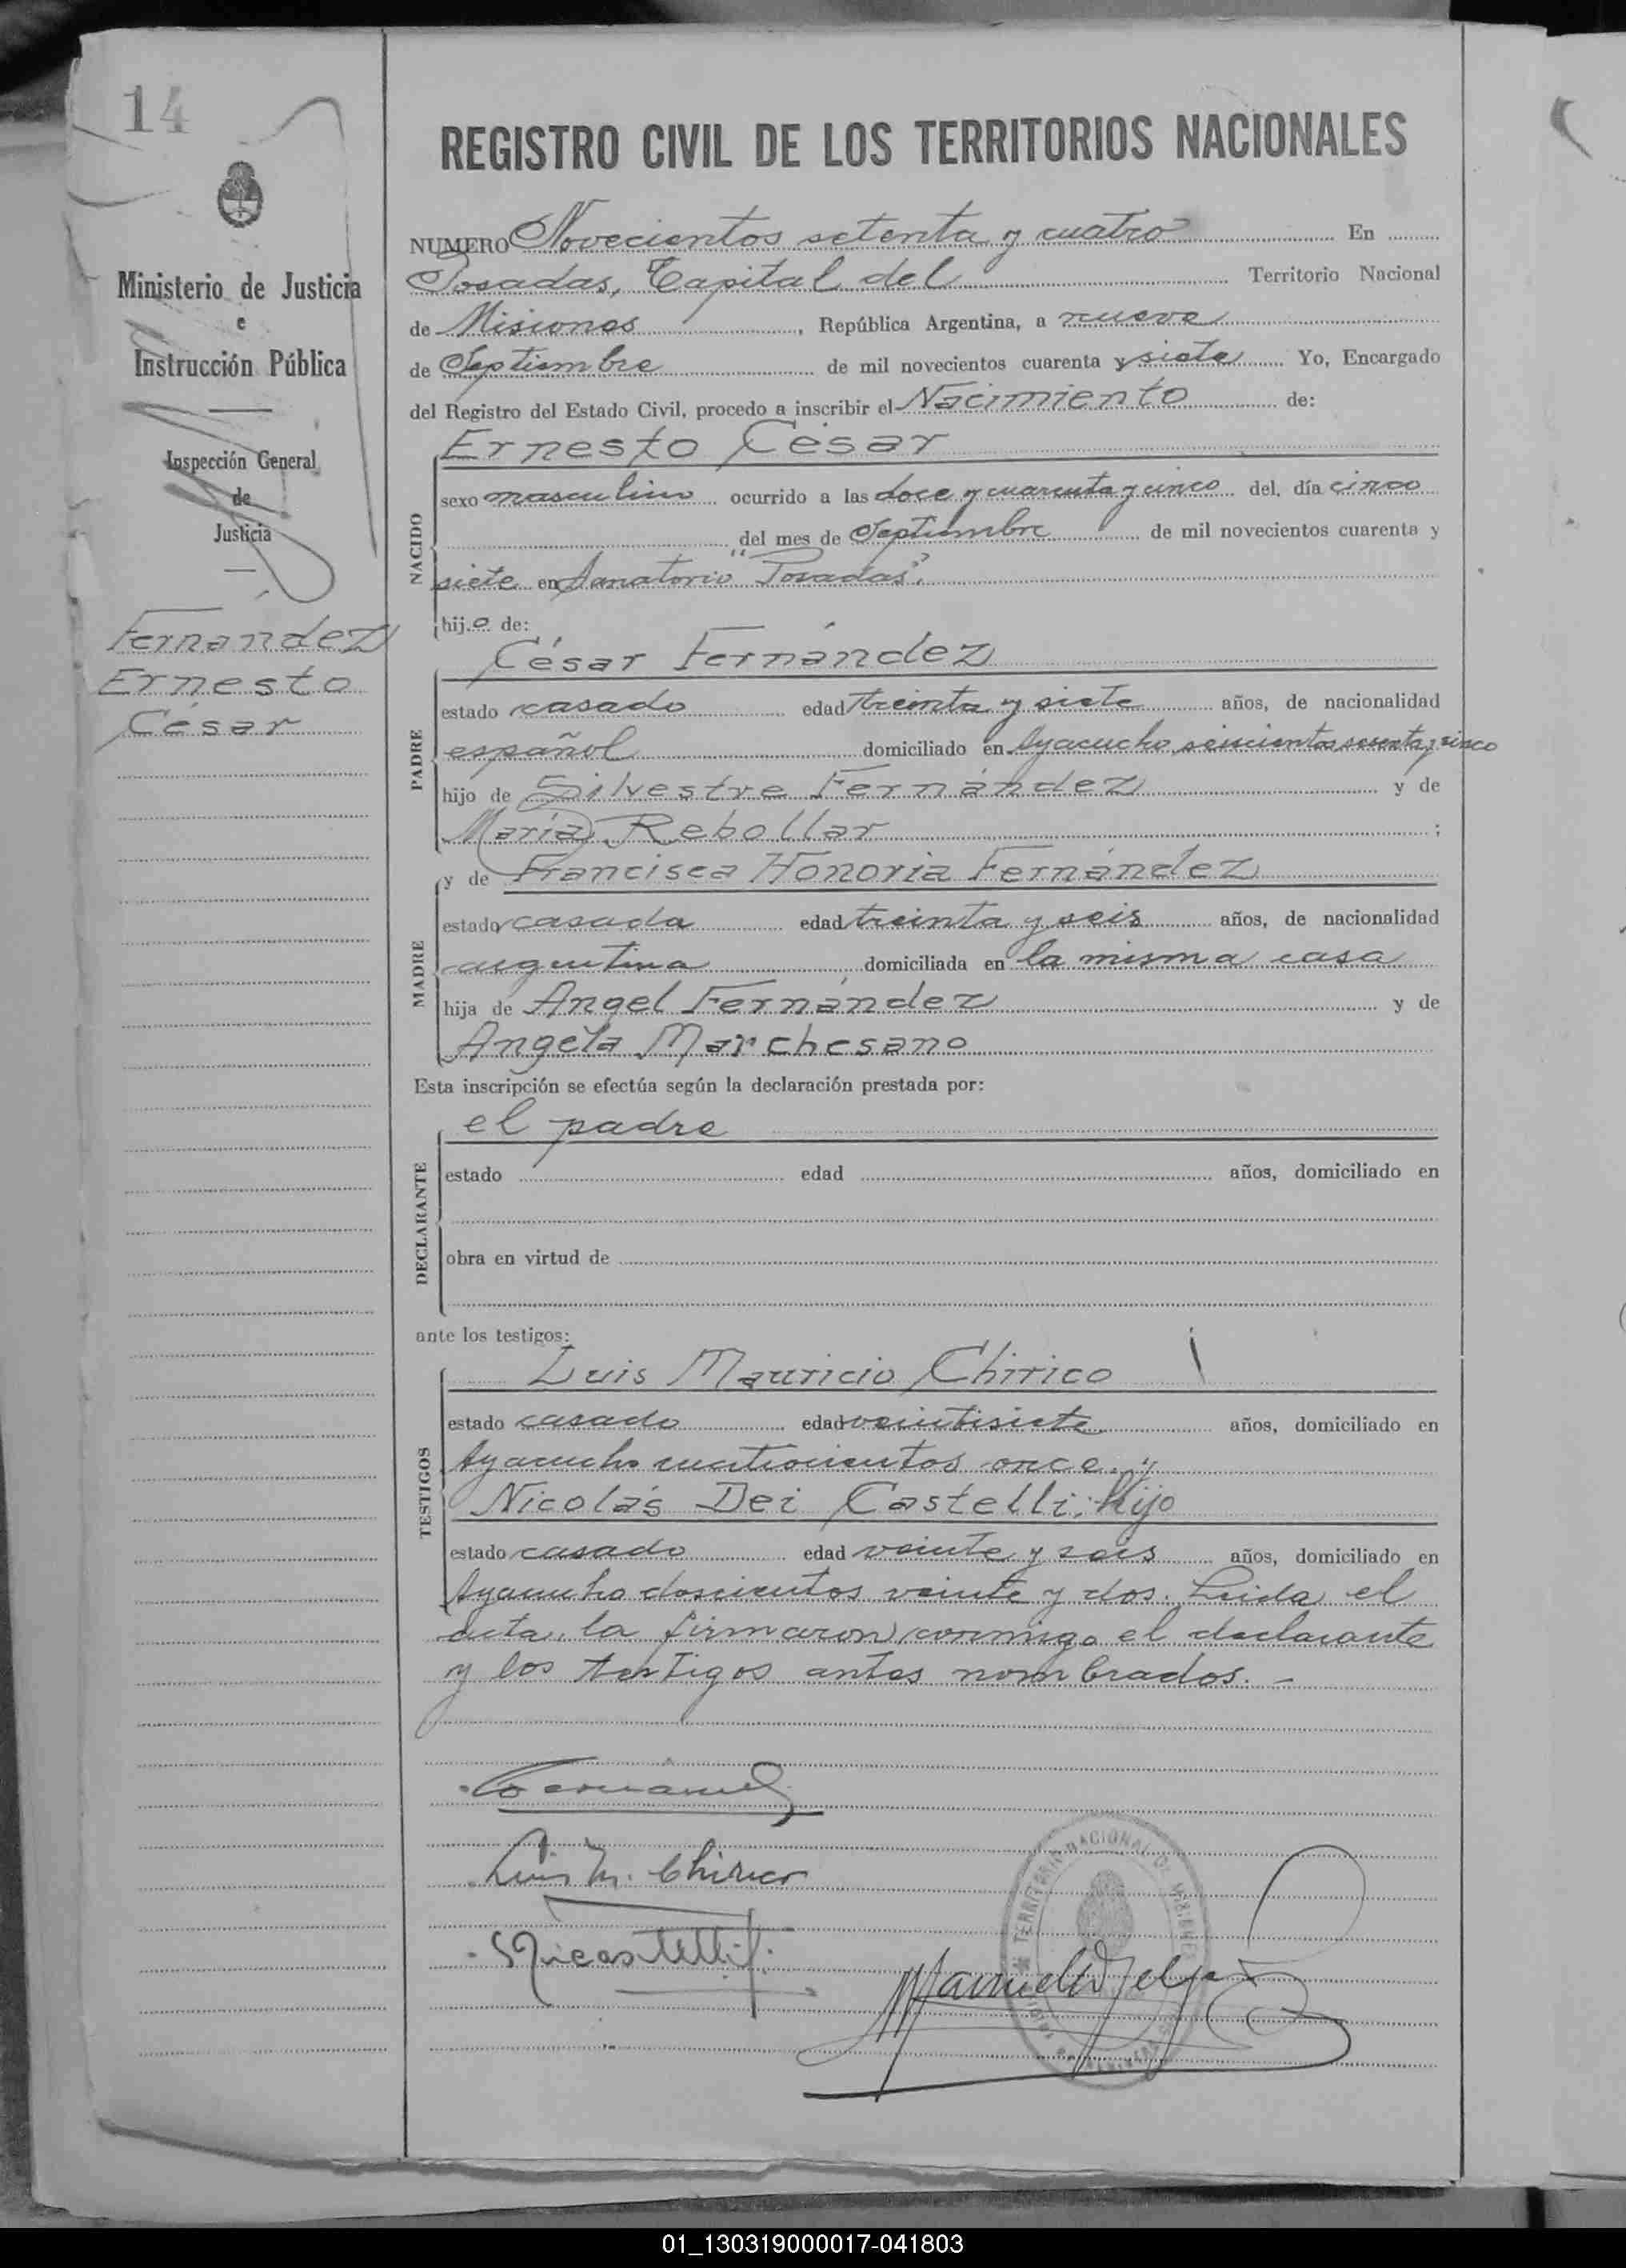 14
REGISTRO CIVIL DE LOS TERRITORIOS NACIONALES
Ministerio de Justicia
e
Instrucción Pública
Inspección General
de
Justicia
Fernández
Ernesto
César
NUMERO Novecientos setenta y cuatro En
Posadas, Capital del Territorio Nacional
de Misiones, República Argentina, a nueve
de Septiembre de mil novecientos cuarenta y siete Yo, Encargado
del Registro del Estado Civil, procedo a inscribir el Nacimiento de:
Ernesto César
NACIDO
sexo masculino ocurrido a las doce y cuarenta y cinco del día cinco
del mes de Septiembre de mil novecientos cuarenta y
siete en Sanatorio "Posadas".
hijo de:
César Fernández
PADRE
estado casado edad treinta y siete años, de nacionalidad
español domiciliado en Ayacucho seiscientos sesenta y cinco
hijo de Silvestre Fernández y de
María Rebollar ;
y de Francisca Honoria Fernández
MADRE
estado casada edad treinta y seis años, de nacionalidad
argentina domiciliada en la misma casa
hija de Angel Fernández y de
Angela Marchesano
Esta inscripción se efectúa según la declaración prestada por:
el padre
DECLARANTE
estado edad años, domiciliado en
obra en virtud de
ante los testigos:
Luis Mauricio Chirico
TESTIGOS
estado casado edad veintisiete años, domiciliado en
Ayacucho cuatrocientos once y
Nicolás Dei Castelli; hijo
estado casado edad veinte y seis años, domiciliado en
Ayacucho doscientos veinte y dos. Leida el
acta, la firmaron conmigo el declarante
y los testigos antes nombrados. -
Luis M. Chirico
TERRITORIO NACIONAL DE MISIONES
01_130319000017-041803